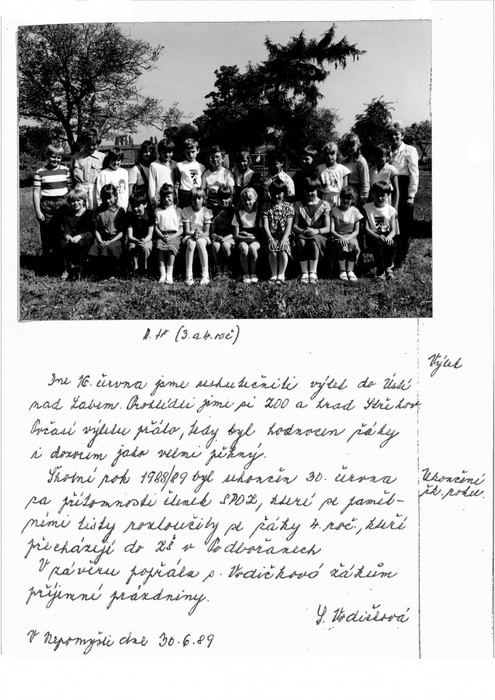 II. tř (3. a 4. roč)
Výlet
Dne 16. června jsme uskutečnili výlet do Ústí
nad Labem. Prohlédli jsme si ZOO a hrad Střekov.
Počasí výletu přálo, tedy byl hodnocen žáky
i dozorem jako velmi pěkný.
Ukončení
šk. roku.
Školní rok 1988/89 byl ukončen 30. června
za přítomnosti členek SPOZ, které se pamět-
ními listy rozloučily se žáky 4. roč., kteří
přecházejí do ZŠ v Podbořanech
V závěru popřála s. Vodičková žákům
příjemné prázdniny.
Vodičková
V Nepomyšli dne 30.6.89